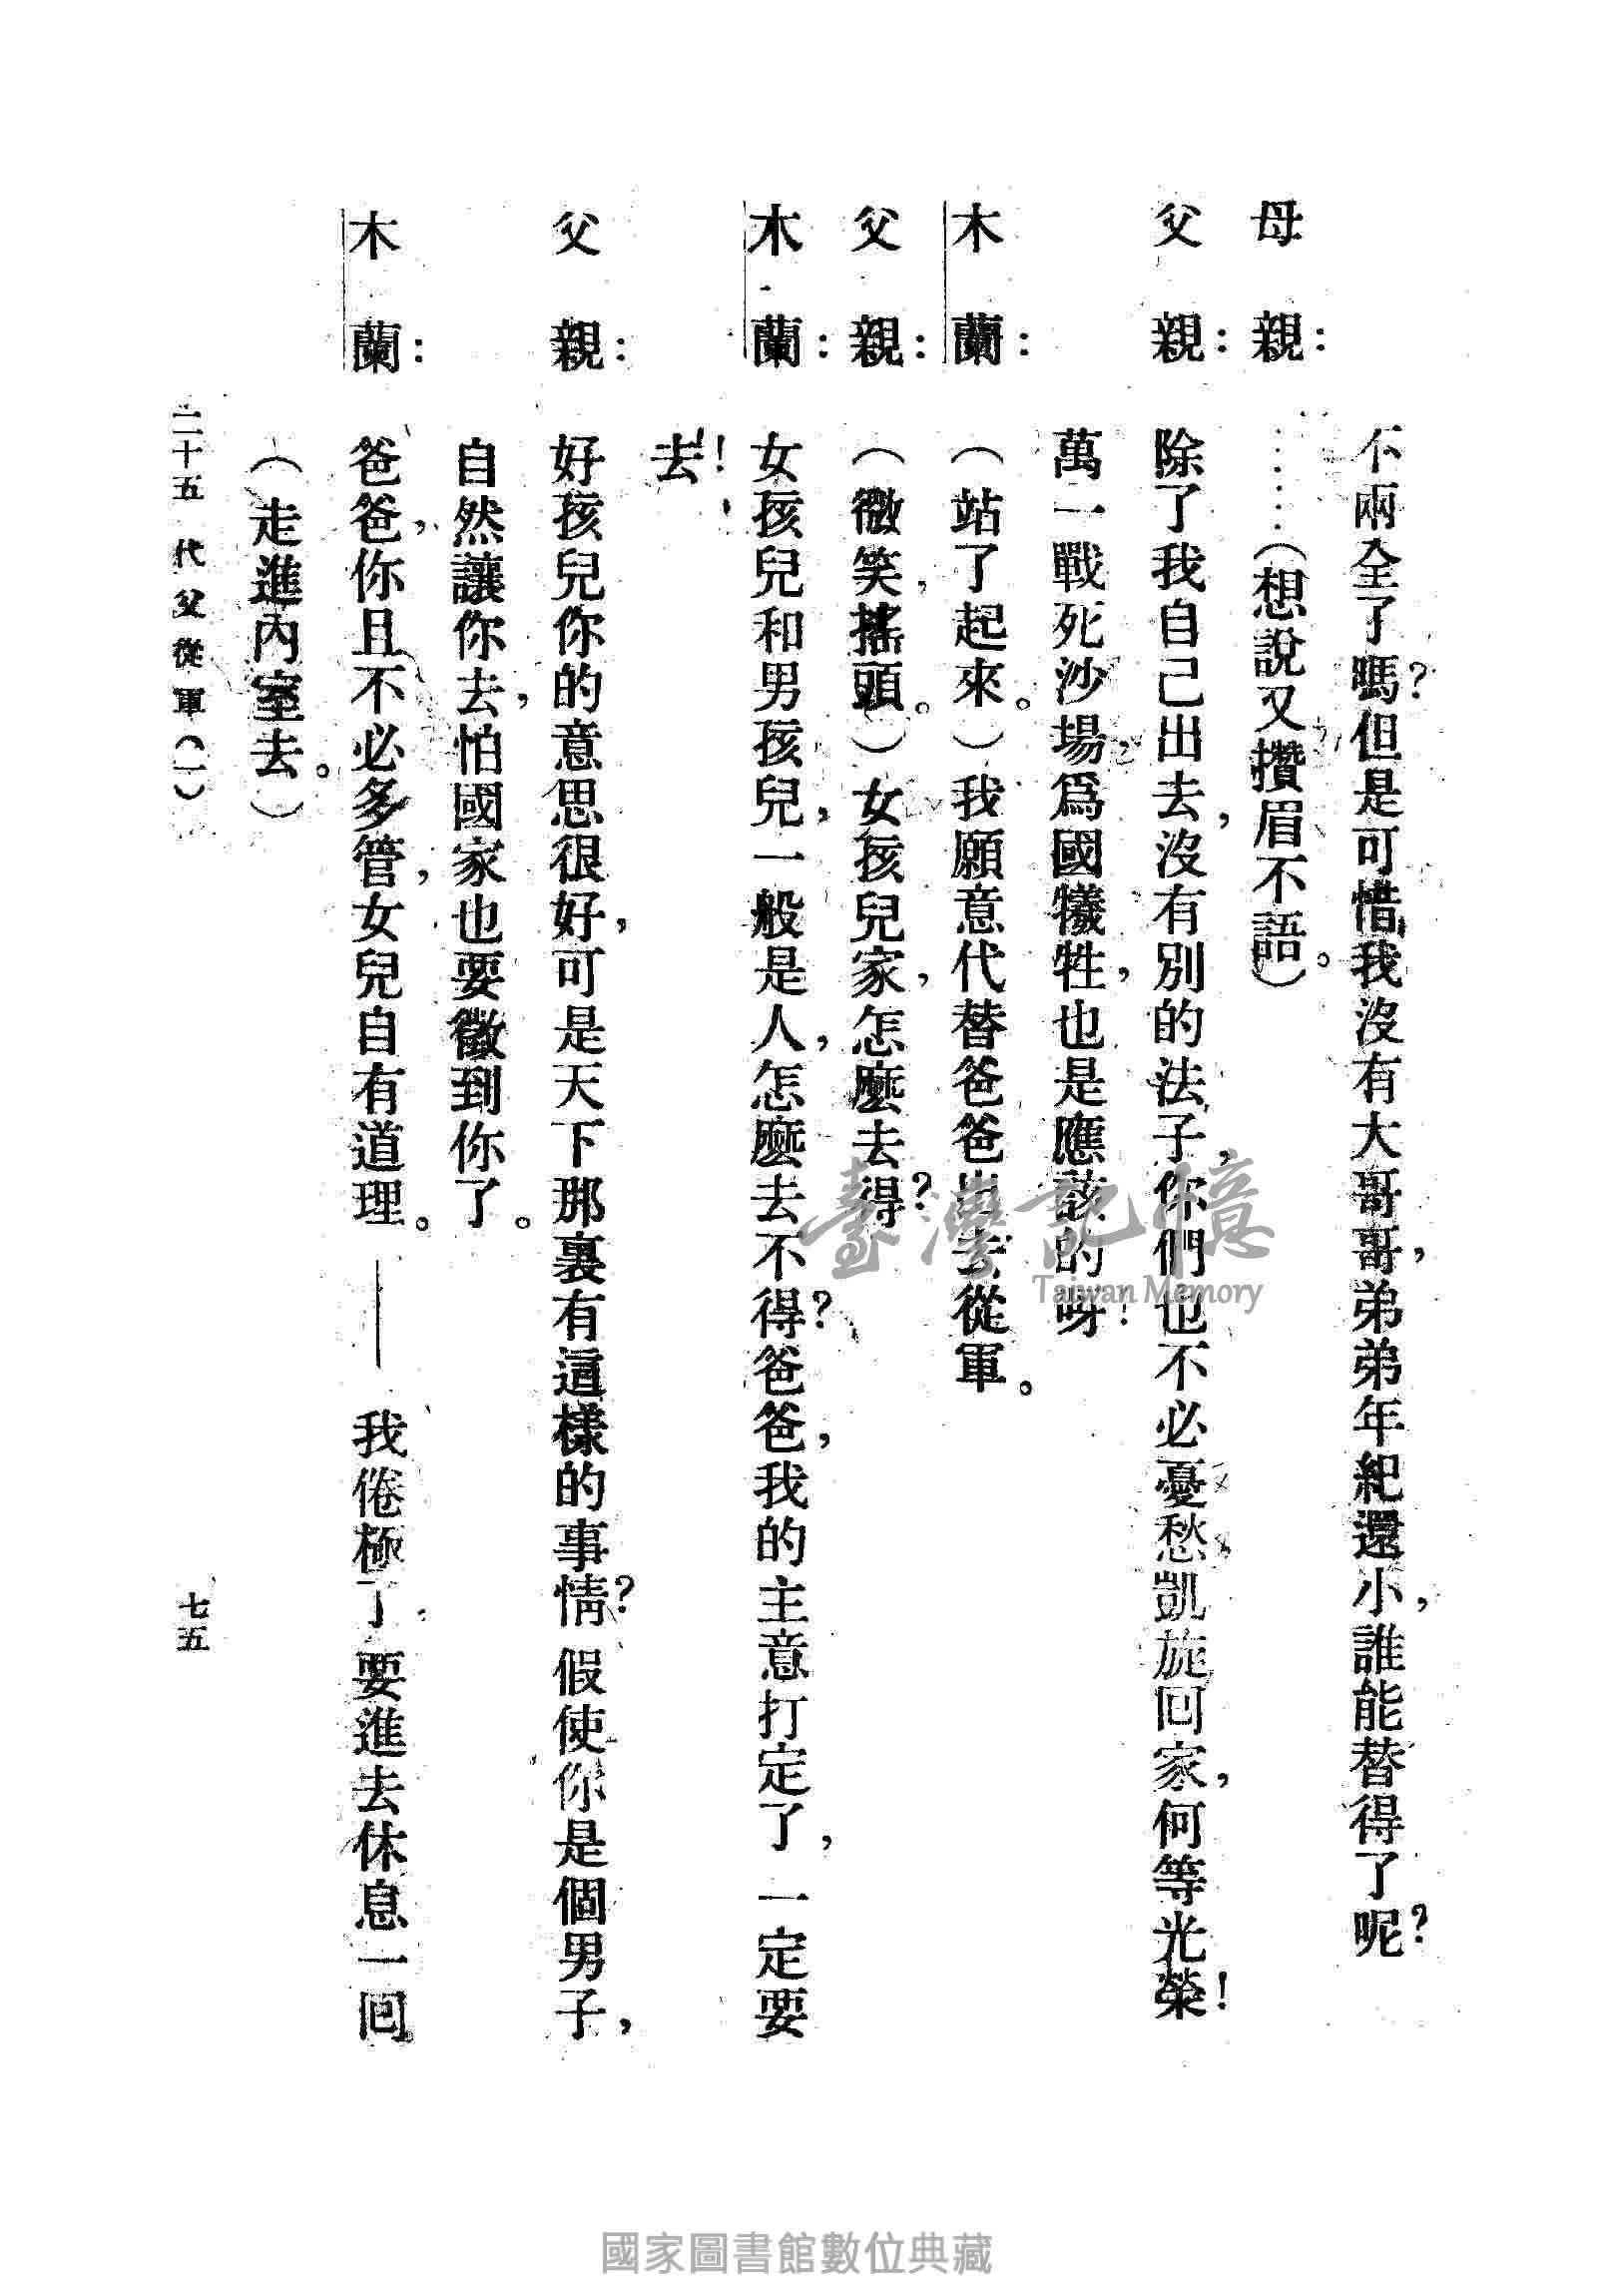 不兩全了嗎?但是可惜我沒有大哥哥,弟弟年紀還小,誰能替得了呢?
母親:……(想說又攢眉不語。)
父親:除了我自己出去,沒有別的法子,你們也不必憂愁,凱旋回家,何等光榮!
萬一戰死沙場,爲國犧牲,也是應該的呀!
木蘭:(站了起來。)我願意代替爸爸出去從軍。
父親:(微笑,搖頭。)女孩兒家,怎麼去得?
木蘭:女孩兒和男孩兒,一般是人,怎麼去不得?爸爸,我的主意打定了,一定要
去!
父親:好孩兒你的意思很好,可是天下那裏有這樣的事情?假使你是個男子,
自然讓你去,怕國家也要徵到你了。
木蘭:爸爸,你且不必多管,女兒自有道理。——我倦極了,要進去休息一回。
(走進內室去。)
二十五 代父從軍(一)
七五
臺灣記憶
Taiwan Memory
國家圖書館數位典藏